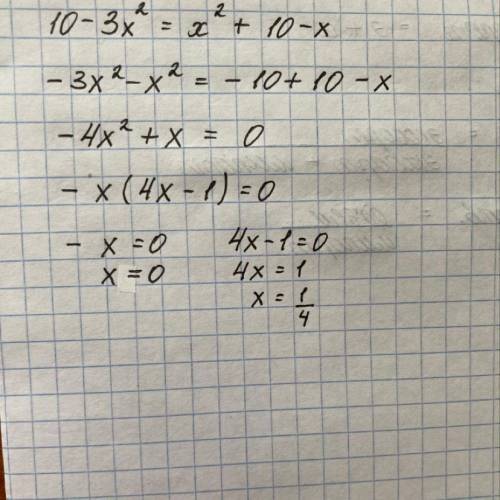 10 - 3x² = x² + 10 - x
- 3x² - x² = - 10 + 10 - x
- 4x² + x = 0
- x (4x - 1) = 0
- x = 0 4x - 1 = 0
x = 0 4x = 1
x = 1/4